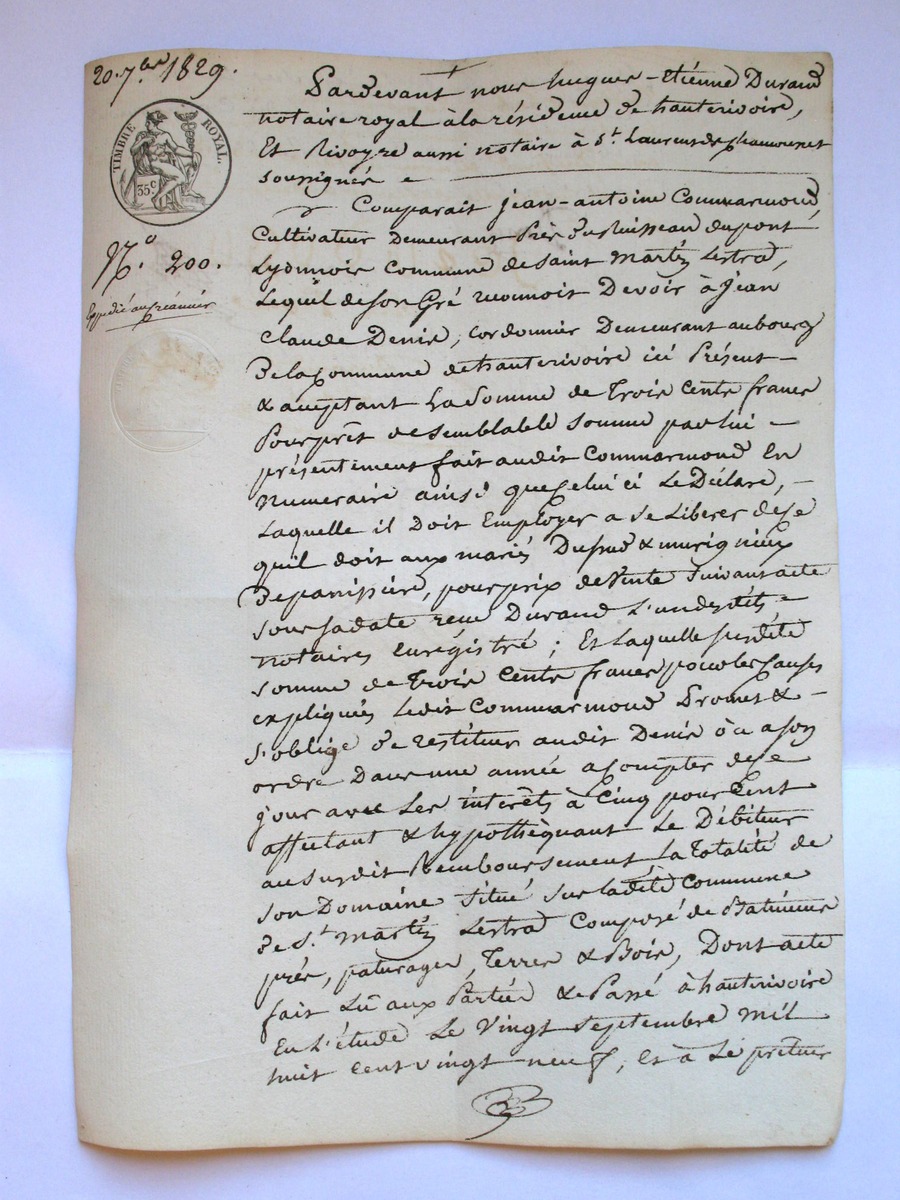 20. 7bre 1829.
TIMBRE ROYAL.
35 c
N.o 200.
Expédié au créancier
Pardevant nous hugues-Etiénne Durand
notaire royal à la résidence de hauterivoire,
Et Rivoyre aussi notaire à St. Laurent de chamousset
soussignés
Comparait jean-antoine Commarmond,
Cultivateur Demeurant Près du Ruisseau du pont
Lyonnois Commune de saint martin Lestra,
Lequel de son Gré reconnoit Devoir à Jean
Claude Denis, cordonnier Demeurant au bourg
De la Commune de hauterivoire ici Présent
& acceptant La Somme de Trois Cents francs
Pour prêt de semblable somme par lui
présentement fait audit Commarmond En
numeraire ainsi que Celui ci Le Déclare,
Laquelle il Doit Employer a se Liberer de ce
quil doit aux mariés Dupud & murigneux
De panissière, pour prix de Vente Suivant acte
sous sa date reçu Durand L'un desdits
notaires Enrégistré ; Et Laquelle susdite
somme de Trois Cents francs pour les Causes
expliquées Ledit Commarmond Promet &
s'oblige De restituer audit Denis ou a son
ordre Dans une année a Compter de ce
jour avec Les interêts à Cinq pour Cent
affectant & hypothèquant Le Débiteur
au susdit Remboursement La Totalité de
son Domaine situé sur ladite Commune
De St. martin Lestra Composé de Batiments
prés, paturages, Terres & Bois, Dont acte
fait Lû aux Parties & Passé à hauterivoire
En L'étude Le Vingt septembre mil
huit cent vingt neuf, Et à Le prêteur